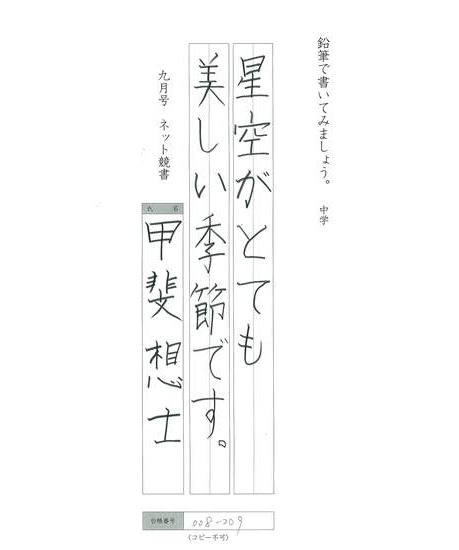 鉛筆で書いてみましょう。 中学
星空がとても
美しい季節です。
九月号 ネット競書
氏 名
甲斐想士
台帳番号 008-209
(コピー不可)